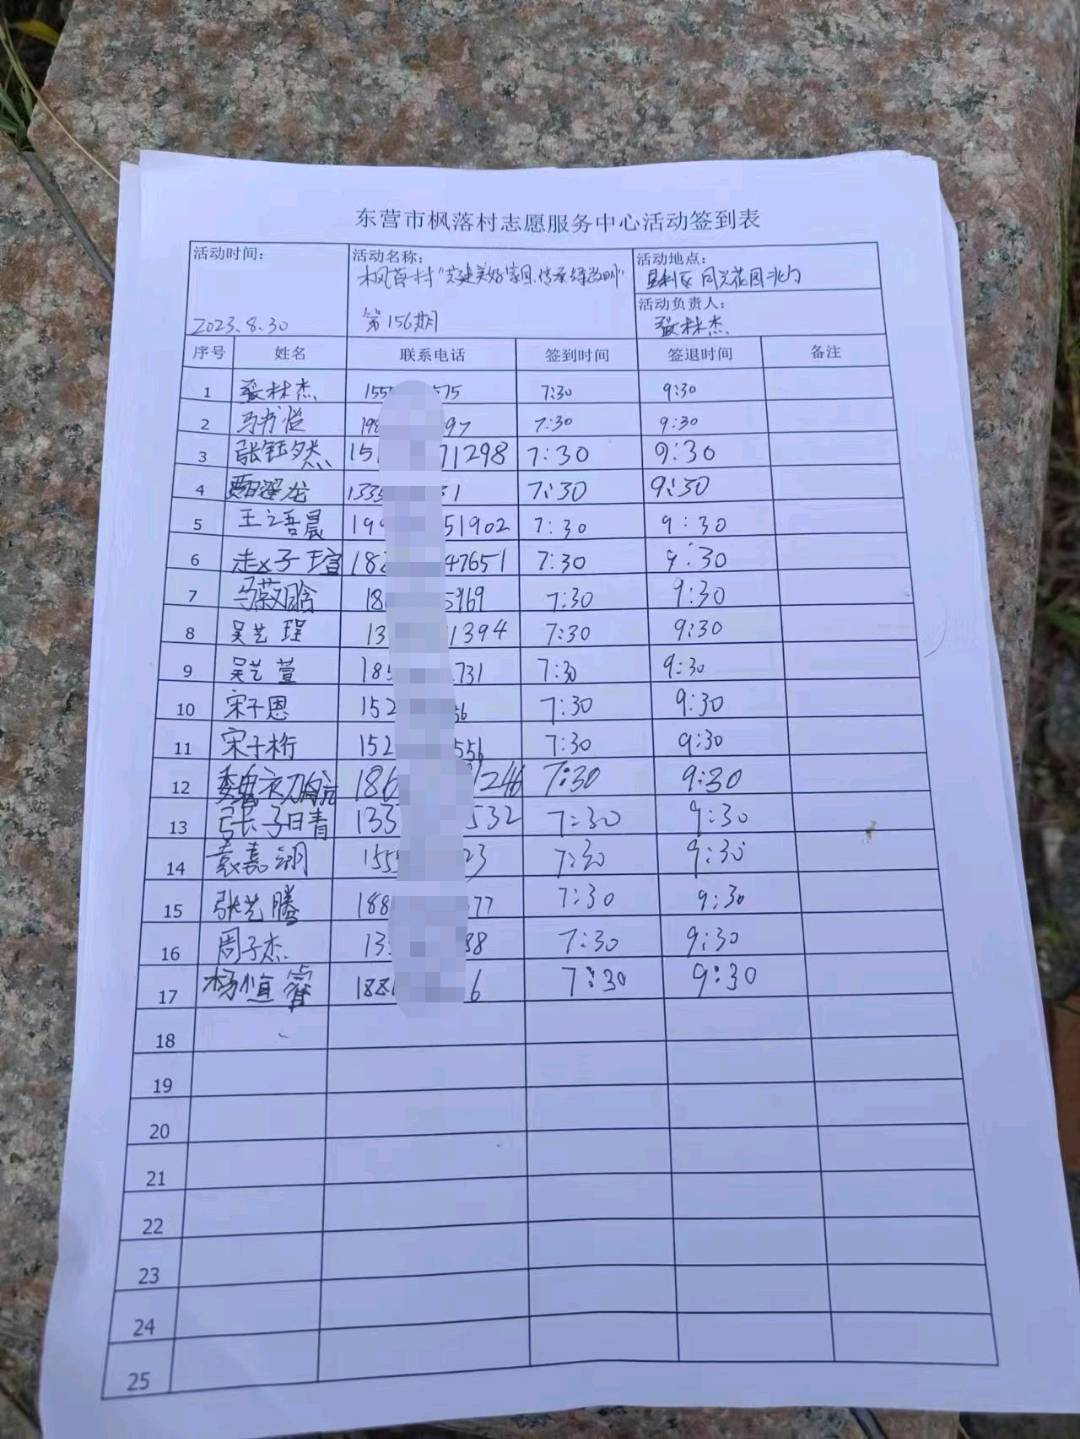 东营市枫落村志愿服务中心活动签到表
活动时间： 活动名称： 活动地点：
枫落村"共建美好家园，传承 同兴花园北门
活动负责人：
2023.8.30 第156期 张林杰
序号 姓名 联系电话 签到时间 签退时间 备注
1 张林杰 155 575 7:30 9:30
2 马书恺 198 97 7:30 9:30
3 张钰 15 71298 7:30 9:30
4 龙 1335 31 7:30 9:30
5 王语晨 199 51902 7:30 9:30
6 赵子瑄 182 47651 7:30 9:30
7 马菽晗 18 5969 7:30 9:30
8 吴艺珵 13 1394 7:30 9:30
9 吴艺萱 185 731 7:30 9:30
10 宋子恩 152 56 7:30 9:30
11 宋子桁 152 556 7:30 9:30
12 魏初 186 1246 7:30 9:30
13 张子晴 133 532 7:30 9:30
14 袁嘉翊 155 23 7:30 9:30
15 张艺腾 188 77 7:30 9:30
16 周子杰 13 88 7:30 9:30
17 杨恒睿 188 6 7:30 9:30
18
19
20
21
22
23
24
25